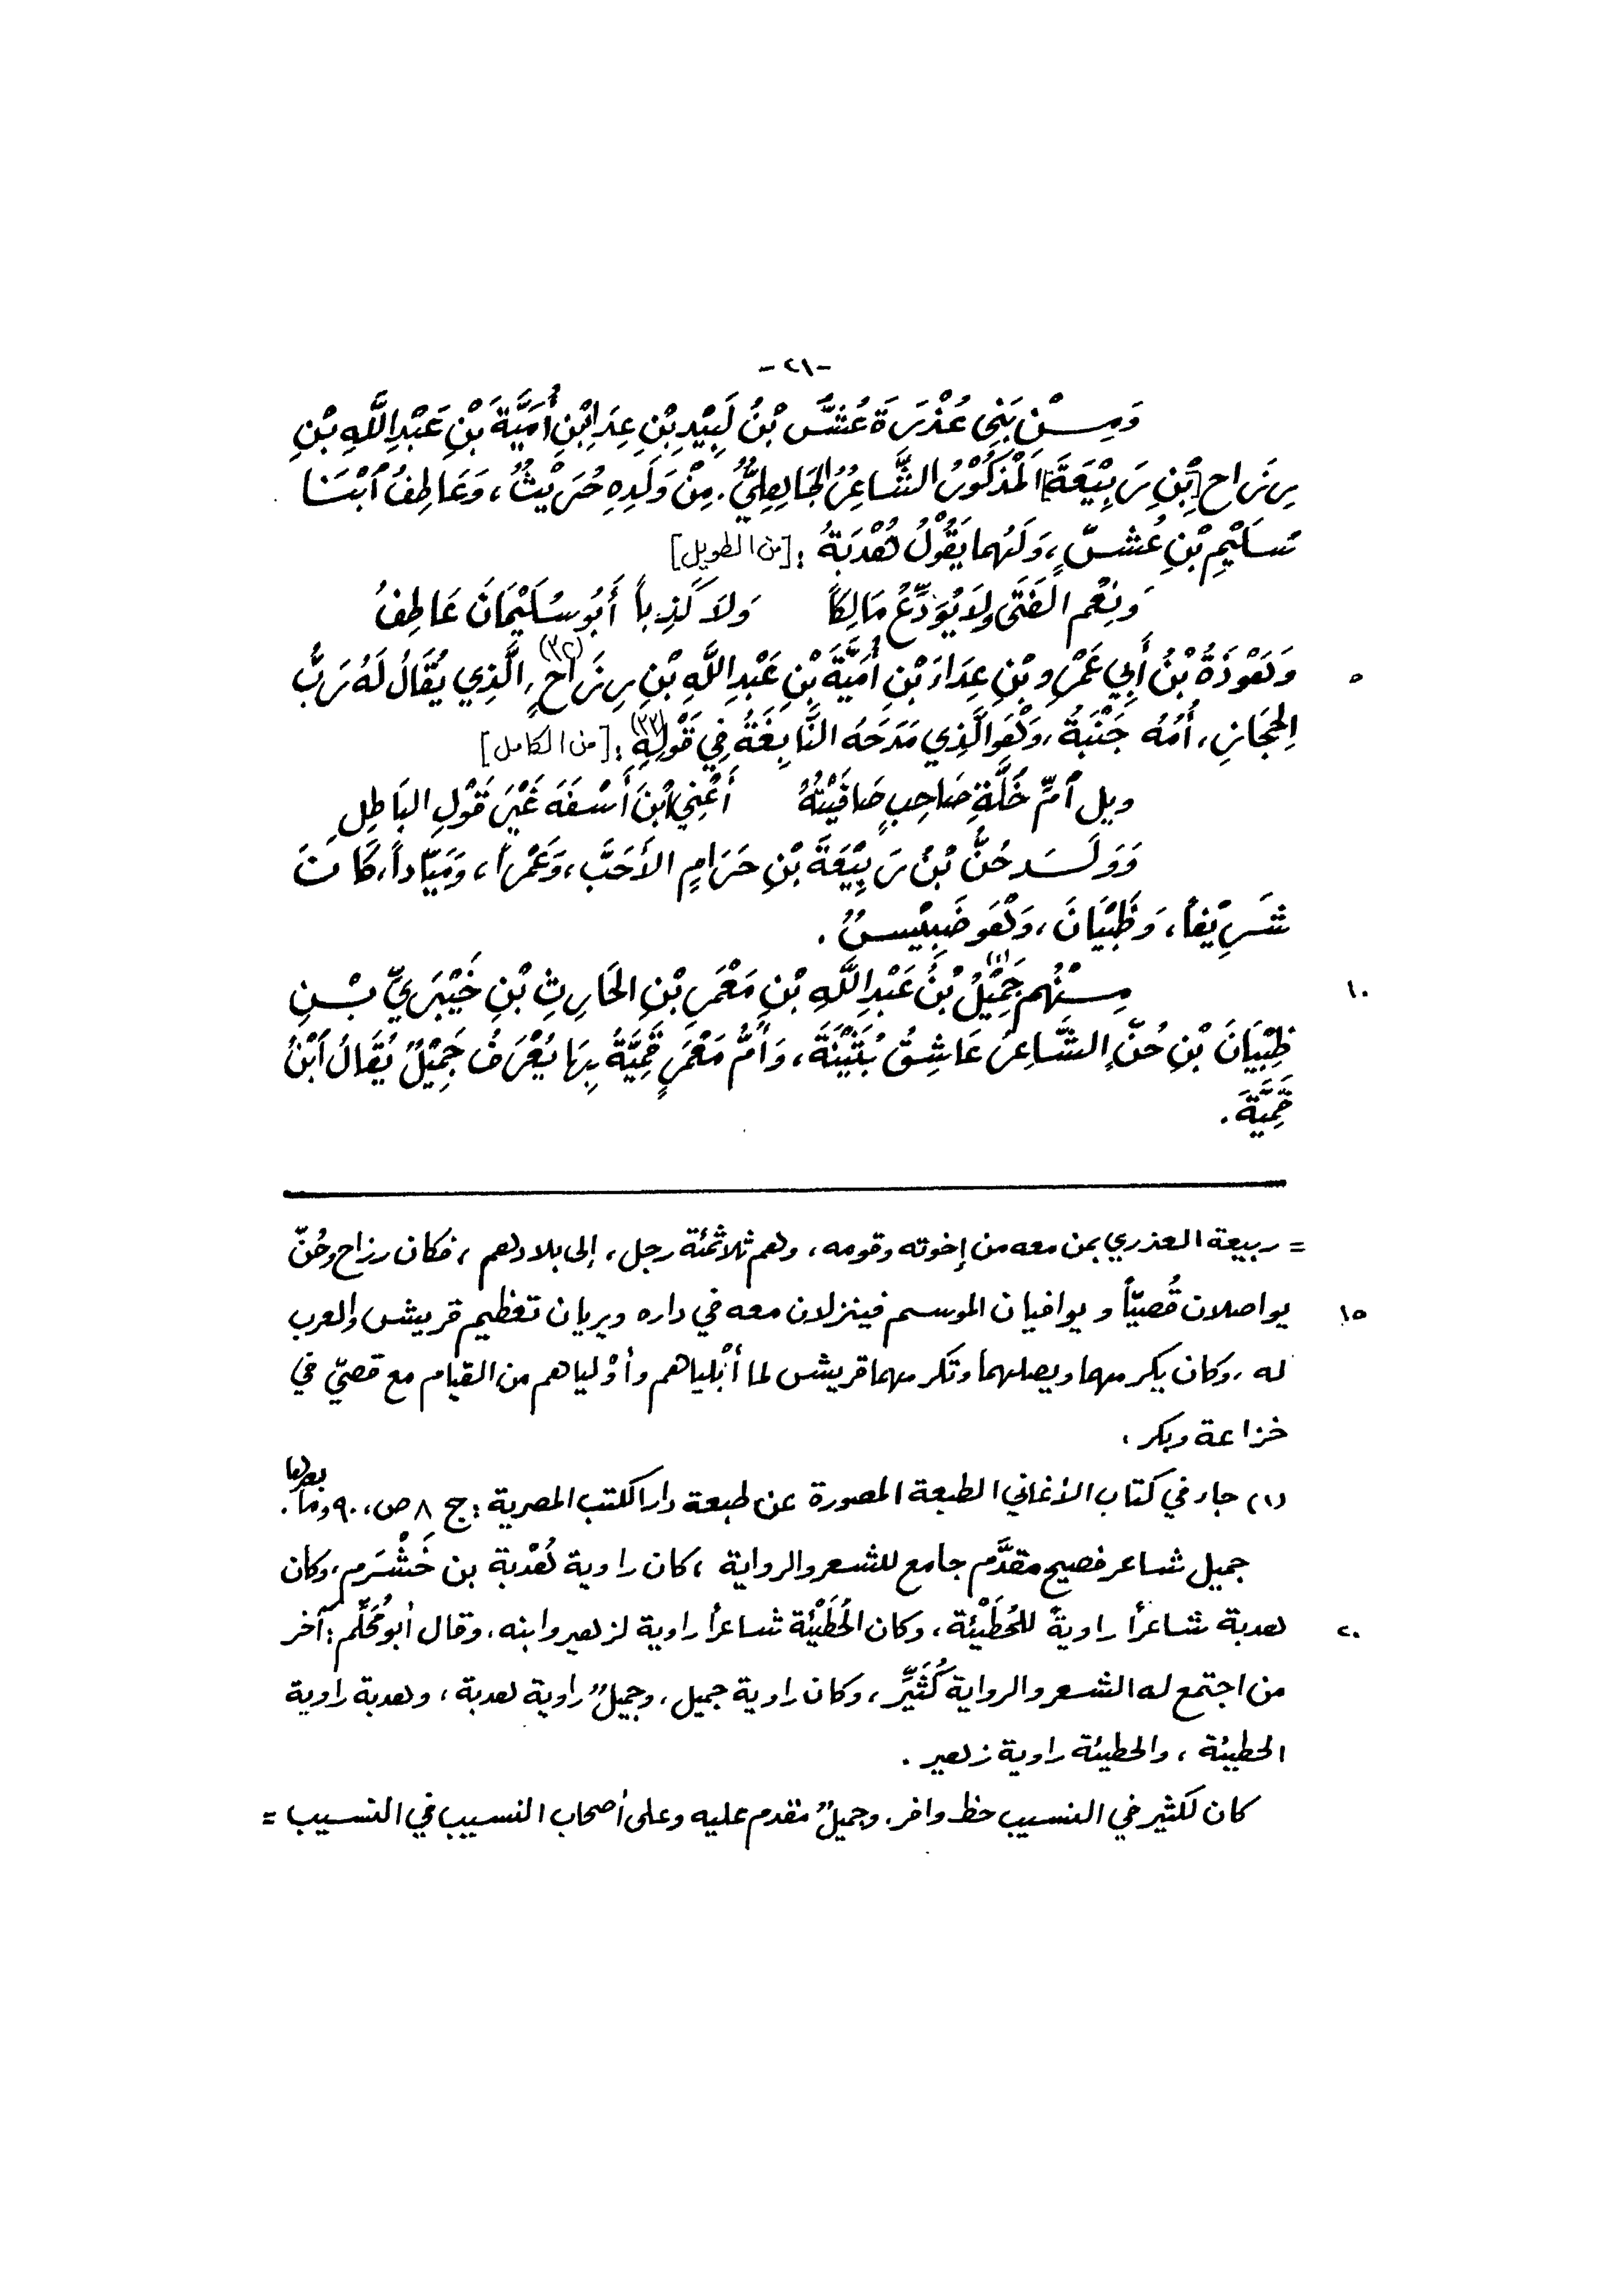 -٢١-
وَمِـنْ بَنِي عُذْرَةَ عُشُّ بْنُ لَبِيْدِ بْنِ عِدَا بْنِ أُمَيَّةَ بْنِ عَبْدِ اللَّهِ بْنِ
رِزَاحِ [بْنِ رَبِيْعَةَ] المَذْكُوْرُ الشَّاعِرُ الجَاهِلِيُّ. مِنْ وَلَدِهِ حُرَيْثُ، وَعَاطِفُ ابْنَا
سُلَيْمِ بْنِ عُشٍّ، وَلَهُمَا يَقُوْلُ هُدْبَةُ: [من الطويل]
وَنِعْم الفَتَى ولَا يُوَدِّعُ هَالِكاً وَلَا كَذِباً أَبُو سُلَيْمَانَ عَاطِفُ
٥ وَهَوْذَةُ بْنُ أَبِي عَمْرِو بْنِ عِدَاءَ بْنِ أُمَيَّةَ بْنِ عَبْدِ اللَّهِ بْنِ رِزَاحٍ (٣٢)، الَّذِي يُقَالُ لَهُ رَبُّ
الحِجَازِ، أُمُّهُ جَنْبَةُ، وَهُوَ الَّذِي مَدَحَهُ النَّابِغَةُ فِي قَوْلِهِ (٣٣): [من الكامل]
ويل أمِّ خُلَّةِ صَاحِبٍ صَافَيْتُهُ أَعْنِي ابْنَ أَسْفَهَ غَيْرَ قَوْلِ البَاطِلِ
وَوَلَـدَ حُنُّ بْنُ رَبِيْعَةَ بْنِ حَرَامٍ الأَحَبَّ، وَعَمْراً، وَمَيَّاداً، كَانَ
شَرِيْفاً، وَظَبْيَانَ، وَهُوَ ضَبِيْسٌ.
١٠ مِـنْهُم جَمِيْلُ (١) بْنُ عَبْدِ اللَّهِ بْنِ مَعْمَرِ بْنِ الحَارِثِ بْنِ خَيْبَرِيِّ بْـنِ
ظَبْيَانَ بْنِ حُنٍّ الشَّاعِرُ عَاشِقُ بُثَيْنَةَ، وَأُمُّ مَعْمَرٍ قَمِيَّةُ بِهَا يُعْرَفُ جَمِيْلٌ يُقَالُ ابْنُ
قَمِيَّةَ.
= ربيعة العذري بمن معه من إخوته وقومه، وهم ثلاثمئة رجل، إلى بلادهم، فكان رزاح وحُنّ
١٥ يواصلان قُصيّاً ويوافيان الموسم فينزلان معه في داره ويريان تعظيم قريش والعرب
له، وكان يكرمهما ويصلهما وتكرمهما قريش لما أَبْلياهم وأَوْلياهم من القيام مع قصيّ في
خزاعة وبكر.
(١) جاء في كتاب الأغاني الطبعة المصورة عن طبعة دار الكتب المصرية: ج ٨ ص، ٩٠ وما بعدها.
جميل شاعر فصيح مقدَّم جامع للشعر والرواية، كان راوية هُدْبة بن خَشْرَم، وكان
٢٠ هدبة شاعراً راويةً للحُطَيْئة، وكان الحُطَيْئة شاعراً راوية لزهير وابنه، وقال أبو مُحَلَّم: آخر
من اجتمع له الشعر والرواية كُثَيِّر، وكان راوية جميل، وجميلٌ راوية هدبة، وهدبة راوية
الحطيئة، والحطيئة راوية زهير.
كان لكثير في النسيب حظ وافر، وجميلٌ مقدم عليه وعلى أصحاب النسيب في النسيب =